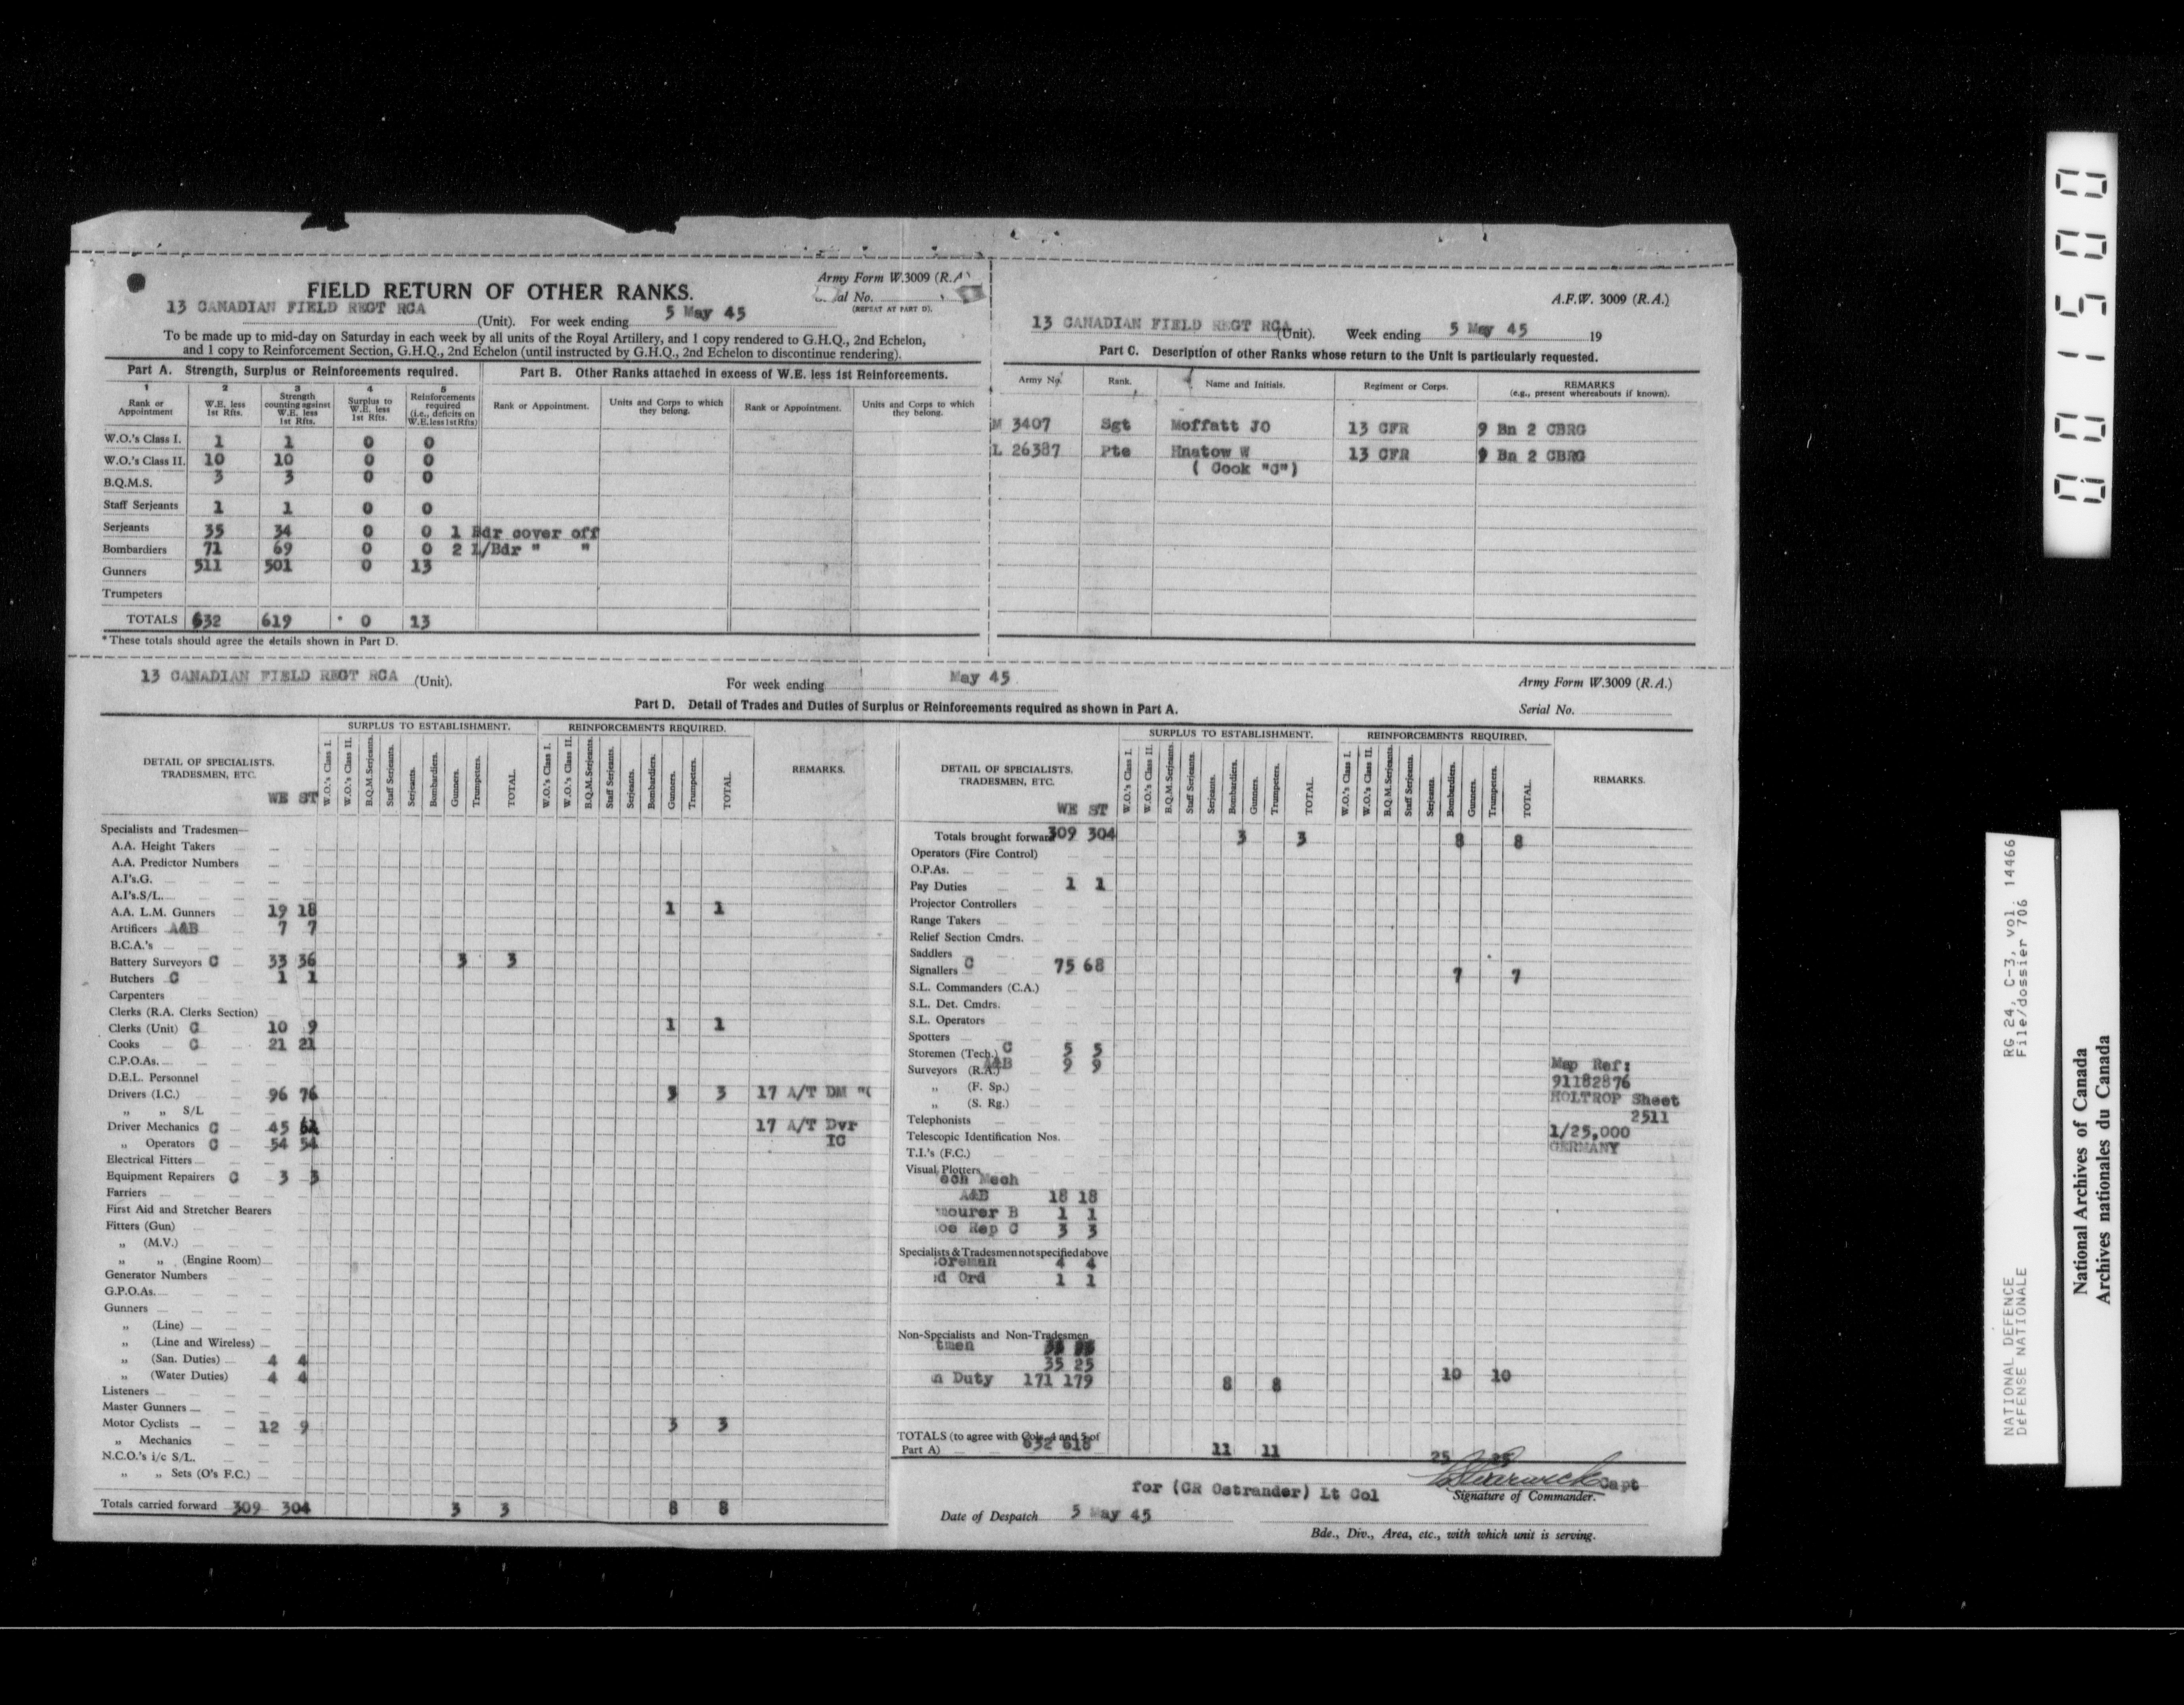 Army Form W.3009 (R.A
FIELD RETURN OF OTHER RANKS.
al No.
(REPEAT AT PART D).
13 CANADIAN FIELD REGT RCA (Unit). For week ending 5 May 45
To be made up to mid-day on Saturday in each week by all units of the Royal Artillery, and 1 copy rendered to G.H.Q., 2nd Echelon,
and 1 copy to Reinforcement Section, G.H.Q., 2nd Echelon (until instructed by G.H.Q., 2nd Echelon to discontinue rendering).
Part A. Strength, Surplus or Reinforcements required.
Part B. Other Ranks attached in excess of W.E. less 1st Reinforcements.
1 2 3 4 5
Rank or Appointment
W.E. less 1st Rfts.
Strength counting against W.E. less 1st Rfts.
Surplus to W.E. less 1st Rfts.
Reinforcements required (i.e., deficits on W.E. less 1st Rfts)
Rank or Appointment.
Units and Corps to which they belong.
Rank or Appointment.
Units and Corps to which they belong.
W.O.'s Class I. 1 1 0 0
W.O.'s Class II. 10 10 0 0
B.Q.M.S. 3 3 0 0
Staff Serjeants 1 1 0 0
Serjeants 35 34 0 0 1 Bdr cover off
Bombardiers 71 69 0 0 2 L/Bdr " "
Gunners 511 501 0 13
Trumpeters
TOTALS 632 619 * 0 13
*These totals should agree the details shown in Part D.
A.F.W. 3009 (R.A.)
13 CANADIAN FIELD REGT RCA (Unit). Week ending 5 May 45 19
Part C. Description of other Ranks whose return to the Unit is particularly requested.
Army No. Rank. Name and Initials. Regiment or Corps. REMARKS
(e.g., present whereabouts if known).
M 3407 Sgt Moffatt JO 13 CFR 9 Bn 2 CBRG
L 26387 Pte Hnatow W 13 CFR 9 Bn 2 CBRG
( Cook "C")
13 CANADIAN FIELD REGT RCA (Unit). For week ending May 45 Army Form W.3009 (R.A.)
Part D. Detail of Trades and Duties of Surplus or Reinforcements required as shown in Part A.
Serial No.
DETAIL OF SPECIALISTS, TRADESMEN, ETC.
WE ST
SURPLUS TO ESTABLISHMENT.
W.O.'s Class I. W.O.'s Class II. B.Q.M.Serjeants. Staff Serjeants. Serjeants. Bombardiers. Gunners. Trumpeters. TOTAL.
REINFORCEMENTS REQUIRED.
W.O.'s Class I. W.O.'s Class II. B.Q.M.Serjeants. Staff Serjeants. Serjeants. Bombardiers. Gunners. Trumpeters. TOTAL.
REMARKS.
Specialists and Tradesmen—
A.A. Height Takers
A.A. Predictor Numbers
A.I's.G.
A.I's.S/L.
A.A. L.M. Gunners 19 18 1 1
Artificers A&B 7 7
B.C.A.'s
Battery Surveyors C 33 36 3 3
Butchers C 1 1
Carpenters
Clerks (R.A. Clerks Section)
Clerks (Unit) C 10 9 1 1
Cooks C 21 21
C.P.O.As.
D.E.L. Personnel
Drivers (I.C.) 96 76 3 3 17 A/T DM "C
„ „ S/L
Driver Mechanics C 45 17 A/T Dvr
„ Operators C 54 54 IC
Electrical Fitters
Equipment Repairers C 3 3
Farriers
First Aid and Stretcher Bearers
Fitters (Gun)
„ (M.V.)
„ „ (Engine Room)
Generator Numbers
G.P.O.As.
Gunners
„ (Line)
„ (Line and Wireless)
„ (San. Duties) 4 4
„ (Water Duties) 4 4
Listeners
Master Gunners
Motor Cyclists 12 9 3 3
„ Mechanics
N.C.O.'s i/c S/L.
„ „ Sets (O's F.C.)
Totals carried forward 309 304 3 3 8 8
DETAIL OF SPECIALISTS, TRADESMEN, ETC.
WE ST
SURPLUS TO ESTABLISHMENT.
W.O.'s Class I. W.O.'s Class II. B.Q.M.Serjeants. Staff Serjeants. Serjeants. Bombardiers. Gunners. Trumpeters. TOTAL.
REINFORCEMENTS REQUIRED.
W.O.'s Class I. W.O.'s Class II. B.Q.M.Serjeants. Staff Serjeants. Serjeants. Bombardiers. Gunners. Trumpeters. TOTAL.
REMARKS.
Totals brought forward 309 304 3 3 8 8
Operators (Fire Control)
O.P.As.
Pay Duties 1 1
Projector Controllers
Range Takers
Relief Section Cmdrs.
Saddlers
Signallers C 75 68 7 7
S.L. Commanders (C.A.)
S.L. Det. Cmdrs.
S.L. Operators
Spotters
Storemen (Tech.) C 5 5
Surveyors (R.A.) A&B 9 9 Map Ref:
„ (F. Sp.) 91182876
„ (S. Rg.) HOLTROP Sheet
Telephonists 2511
Telescopic Identification Nos. 1/25,000
T.I.'s (F.C.) GERMANY
Visual Plotters
ech Mech
A&B 18 18
mourer B 1 1
oe Rep C 3 3
Specialists & Tradesmen not specified above
oreman 4 4
d Ord 1 1
Non-Specialists and Non-Tradesmen
tmen
35 25 10 10
n Duty 171 179 8 8
TOTALS (to agree with Cols. 4 and 5 of
Part A) 632 618 11 11 25 25
for (CR Ostrander) Lt Col Capt
Signature of Commander.
Date of Despatch 5 May 45
Bde., Div., Area, etc., with which unit is serving.
001500
NATIONAL DEFENCE RG 24, C-3, vol. 14466
DéFENSE NATIONALE File/dossier 706
National Archives of Canada
Archives nationales du Canada